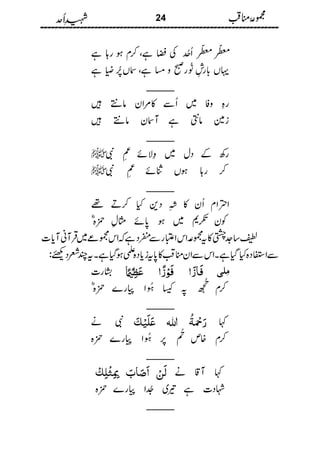 مجموعہ مناقب 24 شہیدِ اُحد
معطر معطر اُحد کی فضا ہے، کرم ہو رہا ہے
یہاں بارشِ نورِ صبح و مسا ہے، سماں پُر ضیا ہے
رہِ وفا میں اُسے کامران مانتے ہیں
زمین مانتی ہے آسمان مانتے ہیں
رکھ کے دل میں ولائے عمِ نبی ﷺ
کر رہا ہوں ثنائے عمِ نبی ﷺ
احترام اُن کا شہِ دین کیا کرتے تھے
کون تکریم میں ہو پائے مثالِ حمزہؓ
لطیف ساجد چشتی کا یہ مجموعہ اس اعتبار سے منفرد ہے کہ اس مجموعے میں قرآنی آیات
سے استفادہ کیا گیا ہے۔ اس سے اس ان مناقب کا پایہ زیادہ علمی ہو گیا ہے۔ یہ چند شعر دیکھئے:
ملی فَازَا فَوْزًا عَظِيْمًا بشارت
کرم تجھ پہ کیسا ہُوا پیارے حمزہؓ
کہا رَحْمَةُ الله عَلَيْكَ نبی نے
کرم خاص تم پر ہُوا پیارے حمزہ
کہا آقا نے لَنْ اُصَابَ بِمِثْلِكَ
شہادت ہے تیری جُدا پیارے حمزہ